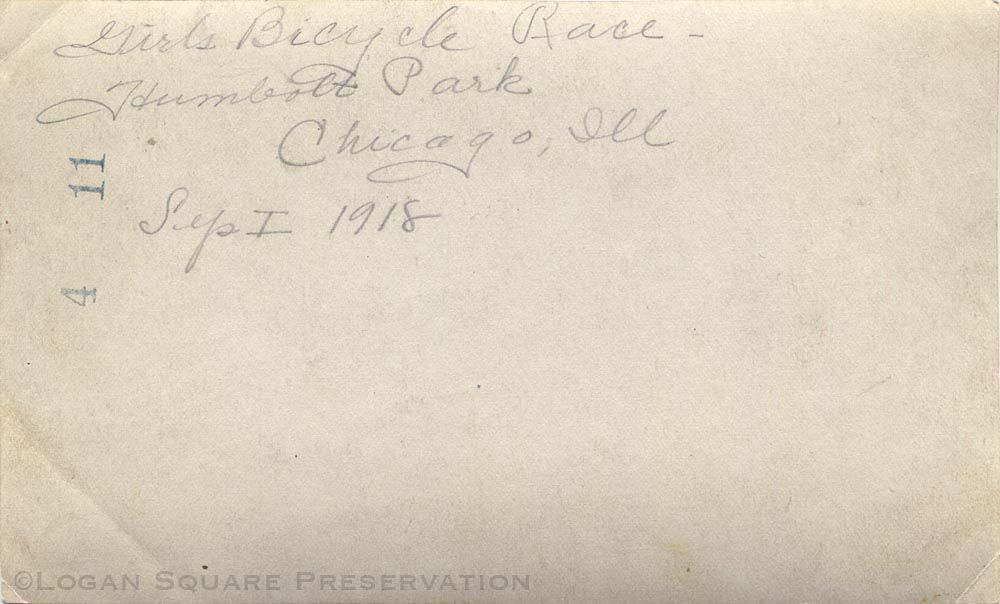 Girls Bicycle Race -
Humbolt Park
Chicago, Ill
11
Sep I 1918
4
©LOGAN SQUARE PRESERVATION